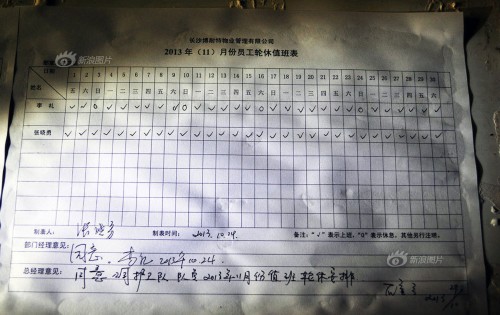 长沙博耐特物业管理有限公司
2013 年（11）月份员工轮休值班表
新浪图片
日期 1 2 3 4 5 6 7 8 9 10 11 12 13 14 15 16 17 18 19 20 21 22 23 24 25 26 27 28 29 30
姓名 五 六 日 一 二 三 四 五 六 日 一 二 三 四 五 六 日 一 二 三 四 五 六 日 一 二 三 四 五 六
李礼
张晓勇
制表人： 张晓勇 制表时间：2013.10.24. 备注："√"表示上班，"O"表示休息，其他另行注明。
部门经理意见： 同意. 李礼 2013.10.24.
新浪图片
总经理意见： 同意 队员2013年11月份值班轮休安排